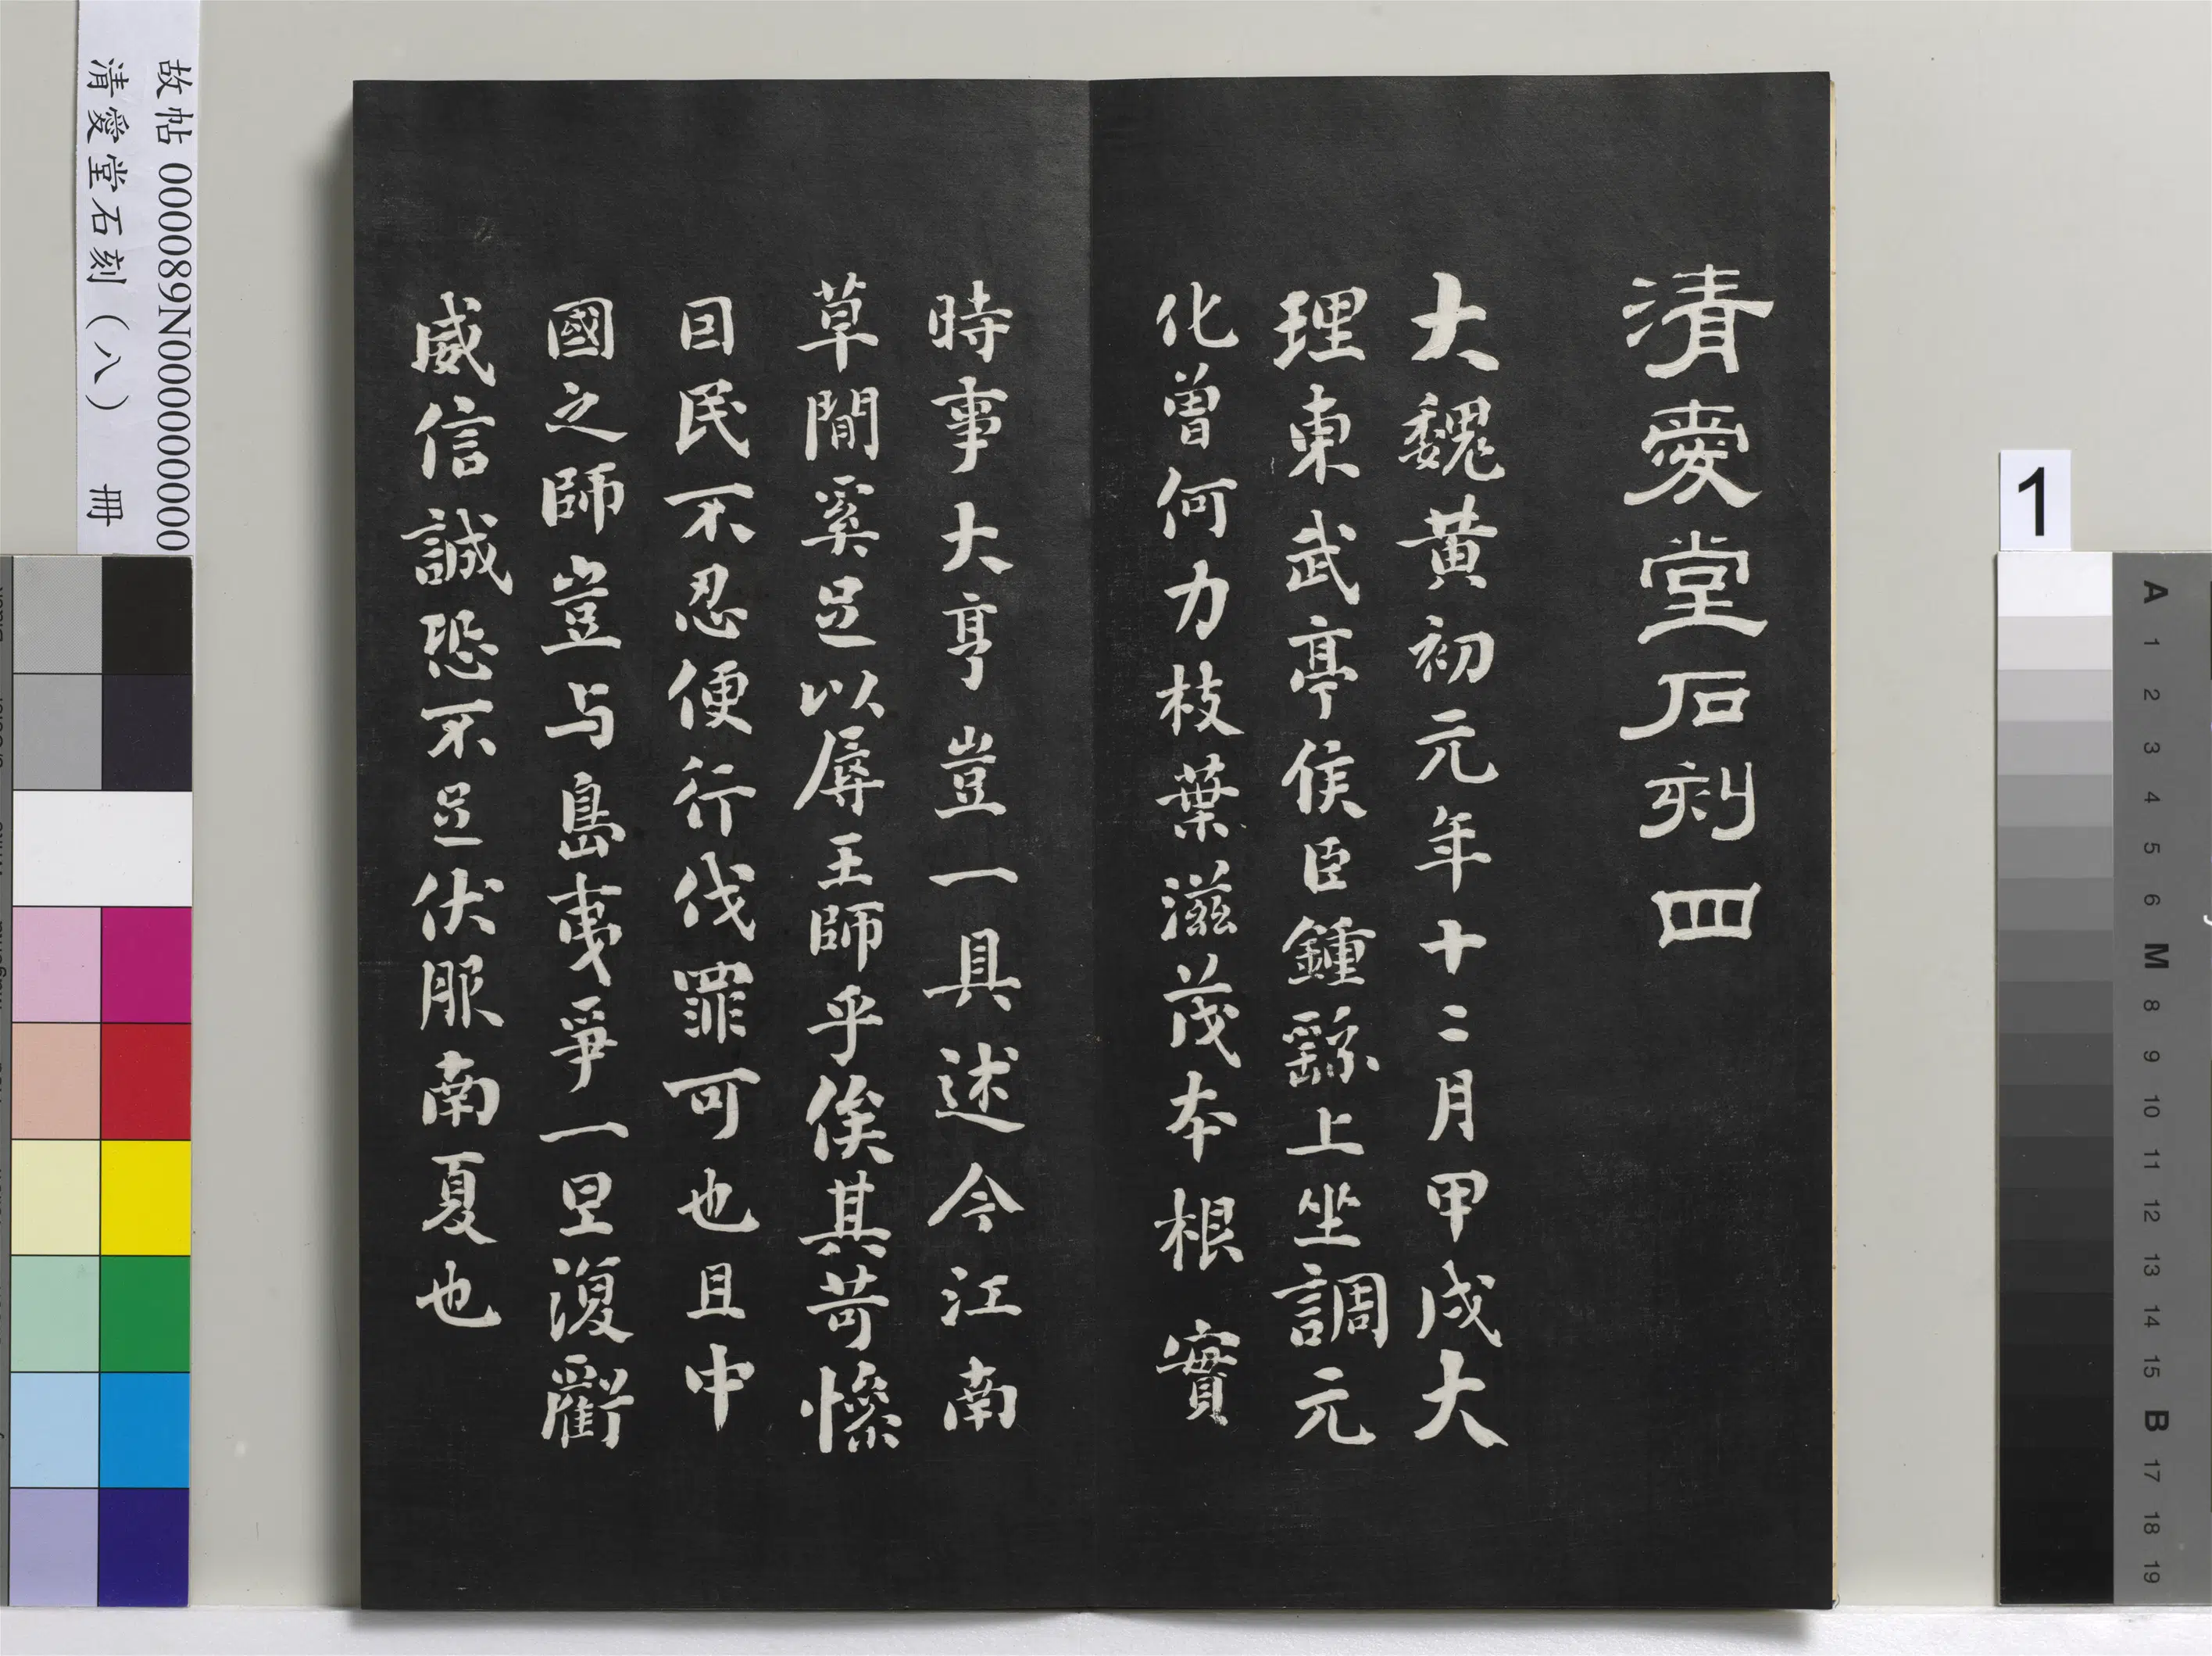 清愛堂石刻四
大魏黃初元年十二月甲戌大
理東武亭侯臣鍾繇上坐調元
化曾何力枝葉滋茂本根實
時事大亨豈一具述今江南
草間奚足以辱王師乎俟其苛慘
因民不忍便行伐罪可也且中
國之師豈与島夷爭一旦復虧
威信誠恐不足伏服南夏也
故帖 000089N000000000
清愛堂石刻（八） 冊
1
A 1 2 3 4 5 6 M 8 9 10 11 12 13 14 15 B 17 18 19